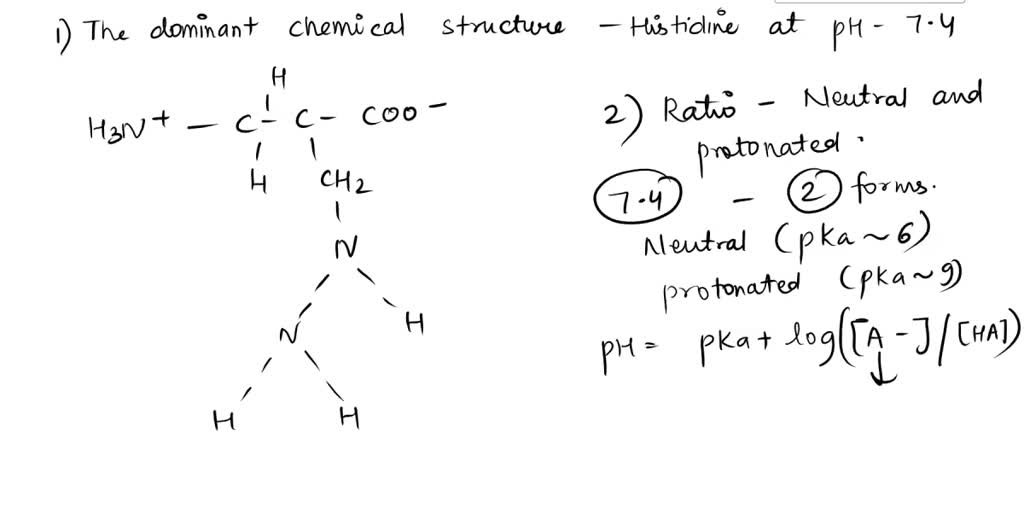 1) The dominant chemical structure - Histidine at pH - 7.4
H
H3N+ - C - C - COO-
H CH2
N
N H
H H
2) Ratio - Neutral and
protonated.
7.4 - 2 forms.
Neutral (pka ~ 6)
protonated (pka ~ 9)
pH = pka + log([A-]/[HA])